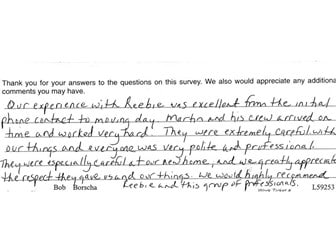 Thank you for your answers to the questions on this survey. We also would appreciate any additional
comments you may have.
Our experience with Reebie was excellent from the initial
phone contact to moving day. Martin and his crew arrived on
time and worked very hard. They were extremely careful with
our things and everyone was very polite and professional.
They were especially careful at our new home, and we greatly appreciate
the respect they gave us and our things. We would highly recommend
Reebie and this group of professionals.
Bob Borscha L59253